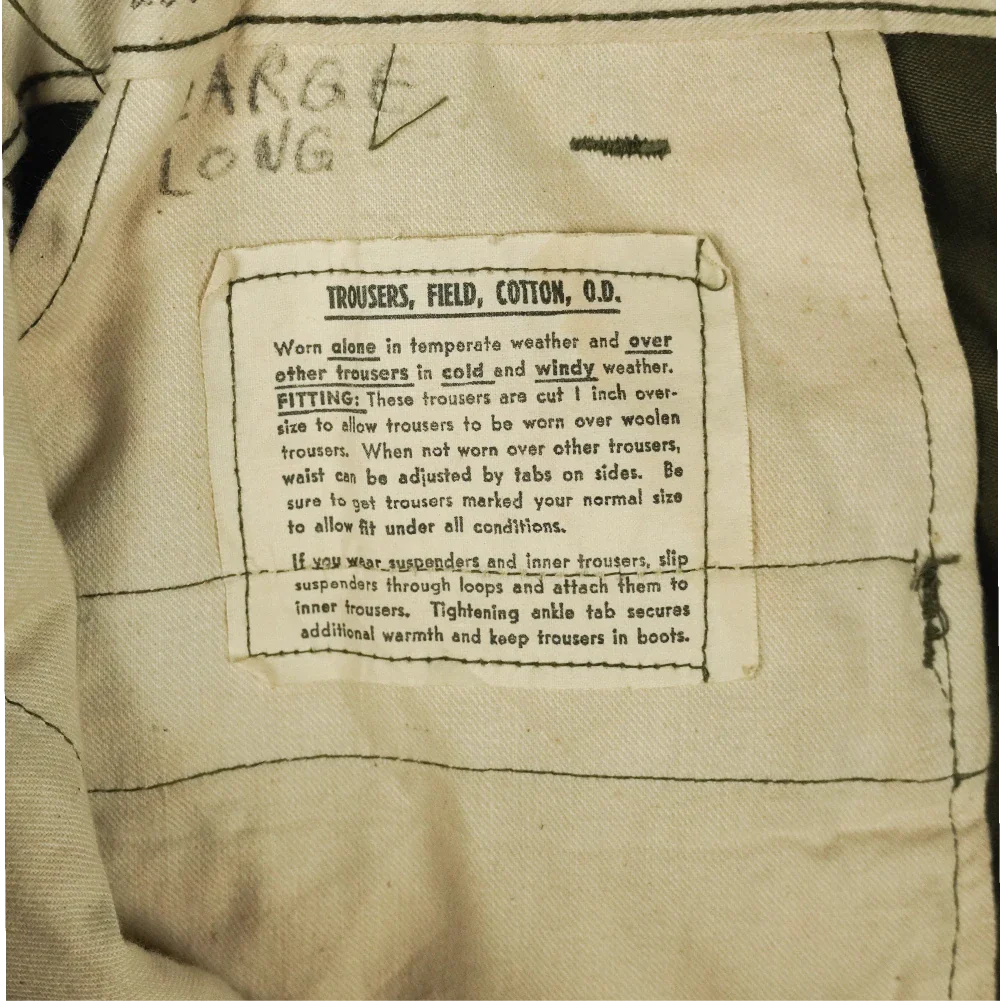 LARGE
LONG
TROUSERS, FIELD, COTTON, O.D.
Worn alone in temperate weather and over
other trousers in cold and windy weather.
FITTING: These trousers are cut 1 inch over-
size to allow trousers to be worn over woolen
trousers. When not worn over other trousers,
waist can be adjusted by tabs on sides. Be
sure to get trousers marked your normal size
to allow fit under all conditions.
If you wear suspenders and inner trousers, slip
suspenders through loops and attach them to
inner trousers. Tightening ankle tab secures
additional warmth and keep trousers in boots.